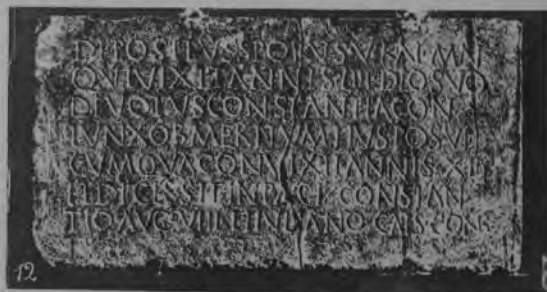 DEPOSITVS
QVI VIXIT ANNIS DEO SVO
DEVOTVS CONSTANTIA CON
IVNX OB MERITVM EIVS POSVIT
CVM QVA CONVIXIT ANNIS
ET DECESSIT IN PACE CONSTAN
TIO AVG VIII ET IVLIANO CAES CONS
12